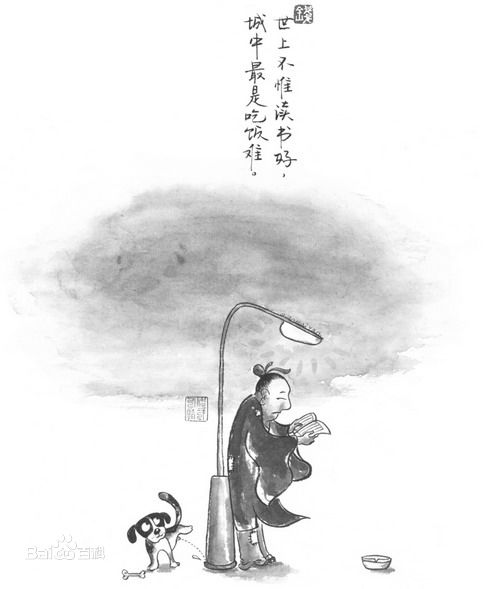 世上不惟读书好，
城中最是吃饭难。
Bai 百科